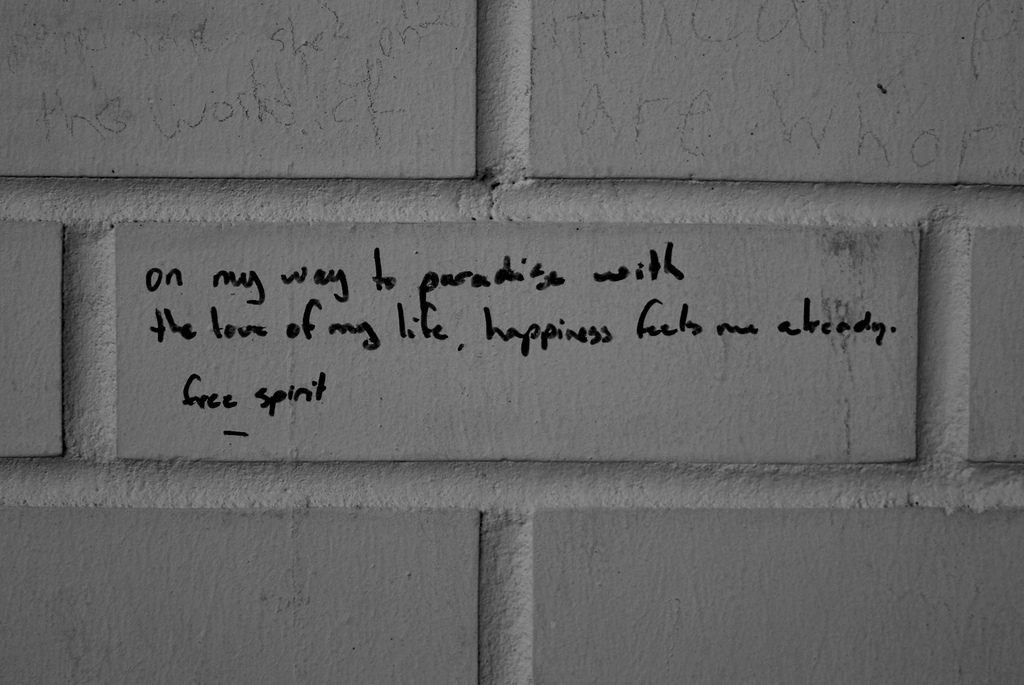 the world if
are whor
on my way to paradise with
the love of my life, happiness feels me already.
free spirit